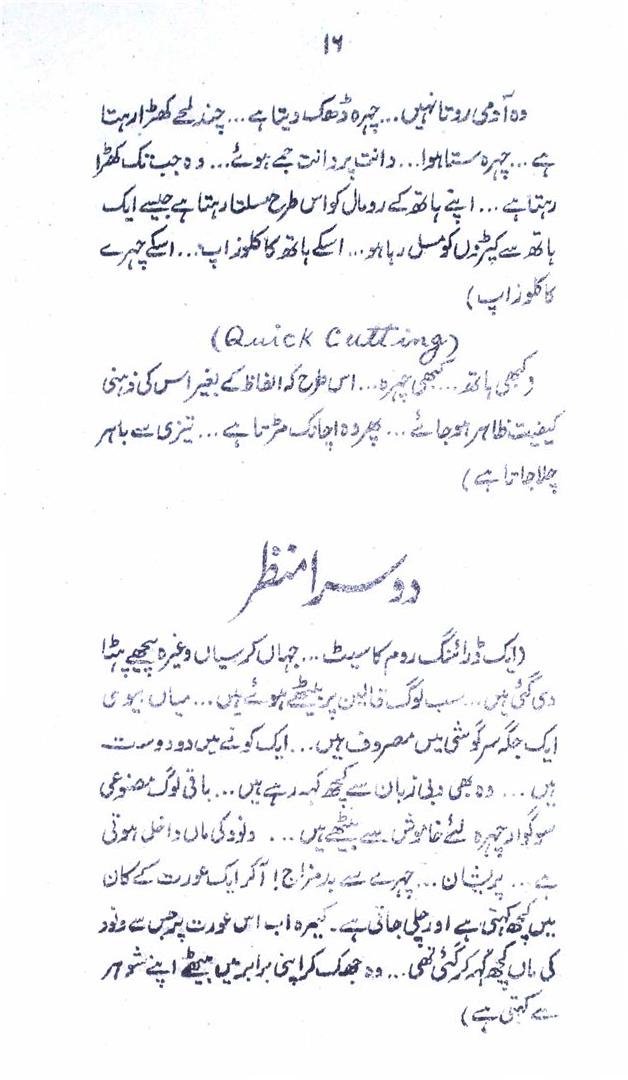 ۱۶
وہ آدمی روتا نہیں... چہرہ ڈھک دیتا ہے... چند لمحے کھڑا رہتا
ہے... چہرہ ستا ہوا... دانت پر دانت جمے ہوئے... وہ جب تک کھڑا
رہتا ہے... اپنے ہاتھ کے رومال کو اس طرح مسلتا رہتا ہے جیسے ایک
ہاتھ سے کپڑوں کو مسل رہا ہو... اسکے ہاتھ کا کلوز اپ... اسکے چہرے
کا کلوز اپ)
(Quick Cutting)
(کبھی ہاتھ... کبھی چہرہ... اس طرح کہ الفاظ کے بغیر اس کی ذہنی
کیفیت ظاہر ہو جائے... پھر وہ اچانک مڑتا ہے... تیزی سے باہر
چلا جاتا ہے)
دوسرا منظر
(ایک ڈرائنگ روم کا سیٹ... جہاں کرسیاں وغیرہ پیچھے ہٹا
دی گئی ہیں... سب لوگ قالین پر بیٹھے ہوئے ہیں... میاں بیوی
ایک جگہ سرگوشی میں مصروف ہیں... ایک کونے میں دو دوست
ہیں... وہ بھی دبی زبان سے کچھ کہہ رہے ہیں... باقی لوگ مصنوعی
سوگوار چہرہ لئے خاموش سے بیٹھے ہیں... ونود کی ماں داخل ہوتی
ہے... پریشان... چہرے سے بدمزاج! آکر ایک عورت کے کان
میں کچھ کہتی ہے اور چلی جاتی ہے۔ کیمرہ اب اس عورت پر جس سے ونود
کی ماں کچھ کہہ کر گئی تھی... وہ جھک کر اپنی برابر میں بیٹھے اپنے شوہر
سے کہتی ہے)